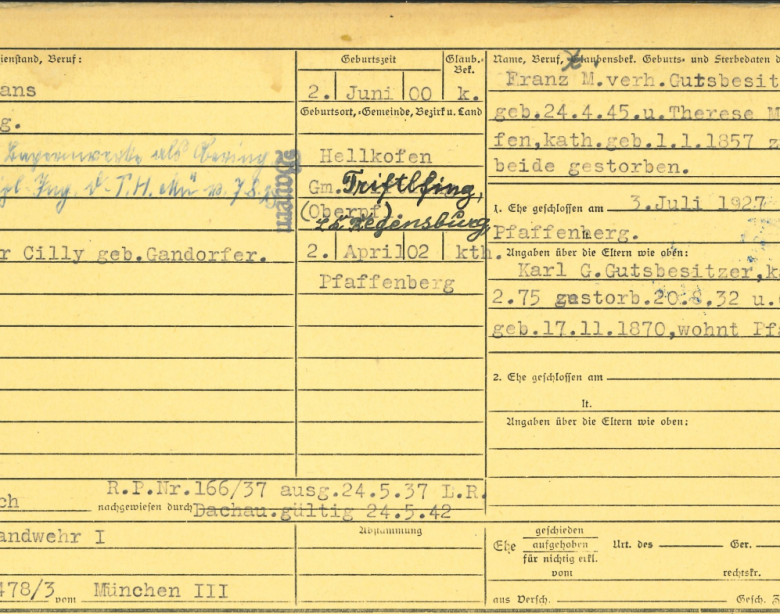 ienstand, Beruf:
Geburtszeit
Glaub.-
Bek.
Name, Beruf, Glaubensbek. Geburts- und Sterbedaten d
ans
2. Juni 00 k.
Franz M.verh.Gutsbesit
Geburtsort,-Gemeinde, Bezirk u. Land
g.
geb.24.4.45.u.Therese M
als
Hellkofen
fen,kath.geb.1.1.1857 z
Bayern
Gm. Triftlfing,
beide gestorben.
(Oberpf).
La Regensburg
1. Ehe geschlossen am 3.Juli 1927
Pfaffenberg.
r Cilly geb.Gandorfer.
2. April 02 kth.
Angaben über die Eltern wie oben:
Karl G.Gutsbesitzer,k
Pfaffenberg
2.75 gestorb.20.8.32 u.
geb.17.11.1870,wohnt Pf
2. Ehe geschlossen am
lt.
Angaben über die Eltern wie oben:
R.P.Nr.166/37 ausg.24.5.37 L.R.
ch
nachgewiesen durch Dachau.gültig 24.5.42
andwehr I
Abstammung
Ehe
geschieden
aufgehoben
für nichtig erkl.
vom
Urt. des
Ger.
rechtskr.
478/3 vom München III
aus Versch.
Gesch.